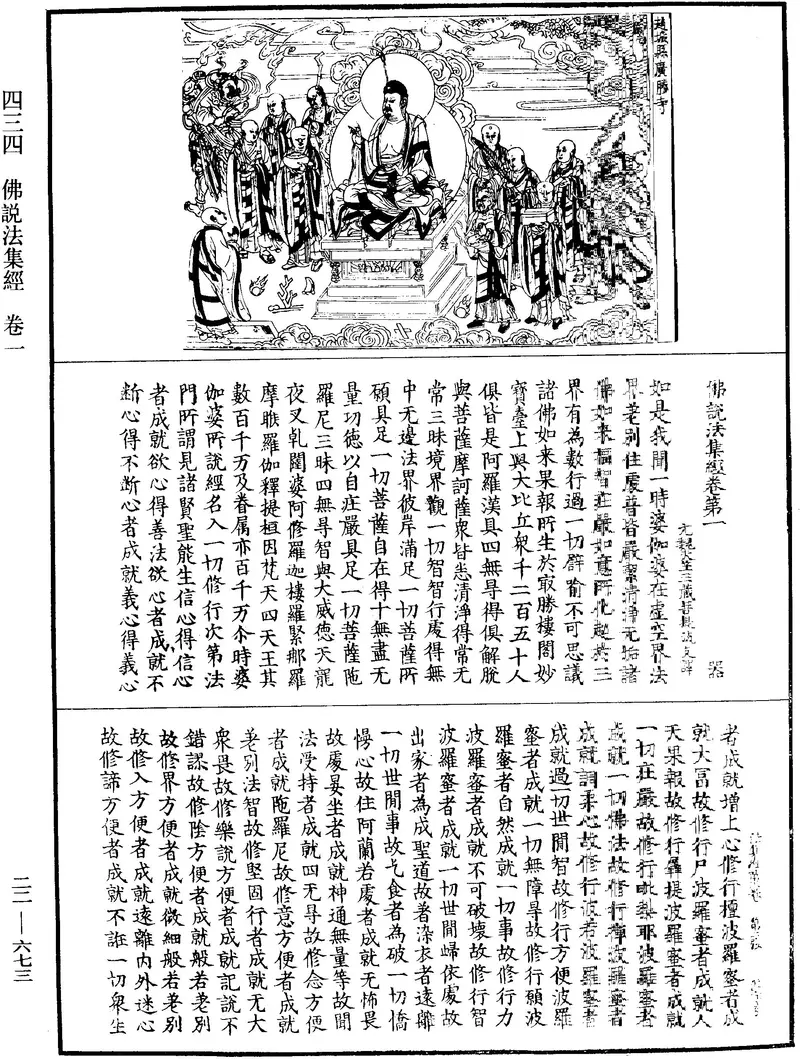 四三四 佛説法集經 卷一
趙城縣廣勝寺
佛說法集經卷第一 器
元魏天竺三藏菩提流支譯
如是我聞一時婆伽婆在虚空界法
界差別住處普皆嚴絜清淨无垢諸
佛如來福智莊嚴如意所化超於三
界有為數行過一切譬喻不可思議
諸佛如來果報所生於㝡勝樓閣妙
寶臺上與大比丘衆千二百五十人
俱皆是阿羅漢具四無㝵得俱解脫
與菩薩摩訶薩衆皆悉清淨得常无
常三昧境界觀一切智智行處得無
中无邊法界彼岸滿足一切菩薩所
願具足一切菩薩自在得十無盡无
量功德以自庄嚴具足一切菩薩陁
羅尼三昧四無㝵智與大威德天龍
夜叉乹闥婆阿修羅迦樓羅緊那羅
摩睺羅伽釋提桓因梵天四天王其
數百千万及眷属亦百千万尒時婆
伽婆所說經名入一切修行次第法
門所謂見諸賢聖能生信心得信心
者成就欲心得善法欲心者成就不
断心得不断心者成就義心得義心
者成就增上心修行檀波羅蜜者成
就大畐故修行尸波羅蜜者成就人
天果報故修行羼提波羅蜜者成就
一切庄嚴故修行毗棃耶波羅蜜者
成就一切佛法故修行禪波羅蜜者
成就調柔心故修行波若波羅蜜者
成就過一切世間智故修行方便波羅
蜜者成就一切無障㝵故修行願波
羅蜜者自然成就一切事故修行力
波羅蜜者成就不可破壞故修行智
波羅蜜者成就一切世間歸依處故
出家者為成聖道故著染衣者遠離
一切世間事故乞食者為破一切憍
慢心故住阿蘭若處者成就无怖畏
故處晏坐者成就神通無量等故聞
法受持者成就四无㝵故修念方便
者成就陁羅尼故修意方便者成就
差別法智故修堅固行者成就无大
衆畏故修樂說方便者成就記說不
錯謬故修陰方便者成就般若差別
故修界方便者成就微細般若差別
故修入方便者成就遠離內外迷心
故修諦方便者成就不誑一切衆生
二二—六七三